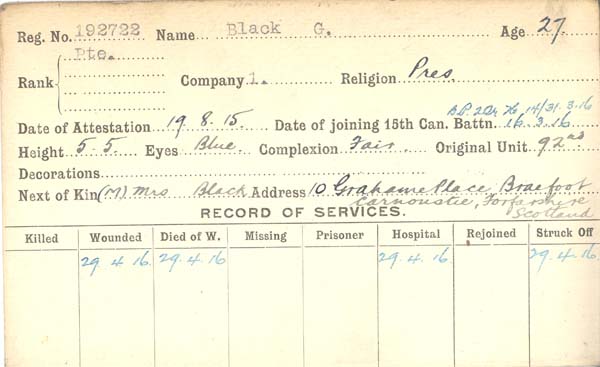 Reg. No. 192722 Name Black G. Age 27.
Pte.
Rank Company 1. Religion Pres.
14/31.3.16
Date of Attestation 19.8.15. Date of joining 15th Can. Battn. 16.3.16
Height 5.5. Eyes Blue. Complexion Fair. Original Unit 92nd.
Decorations
Next of Kin (M) Mrs Black Address 10 Grahame Place, Braefoot
Carnoustie, Forfarshire
Scotland
RECORD OF SERVICES.
Killed Wounded Died of W. Missing Prisoner Hospital Rejoined Struck Off
29.4.16. 29.4.16 29.4.16. 29.4.16.